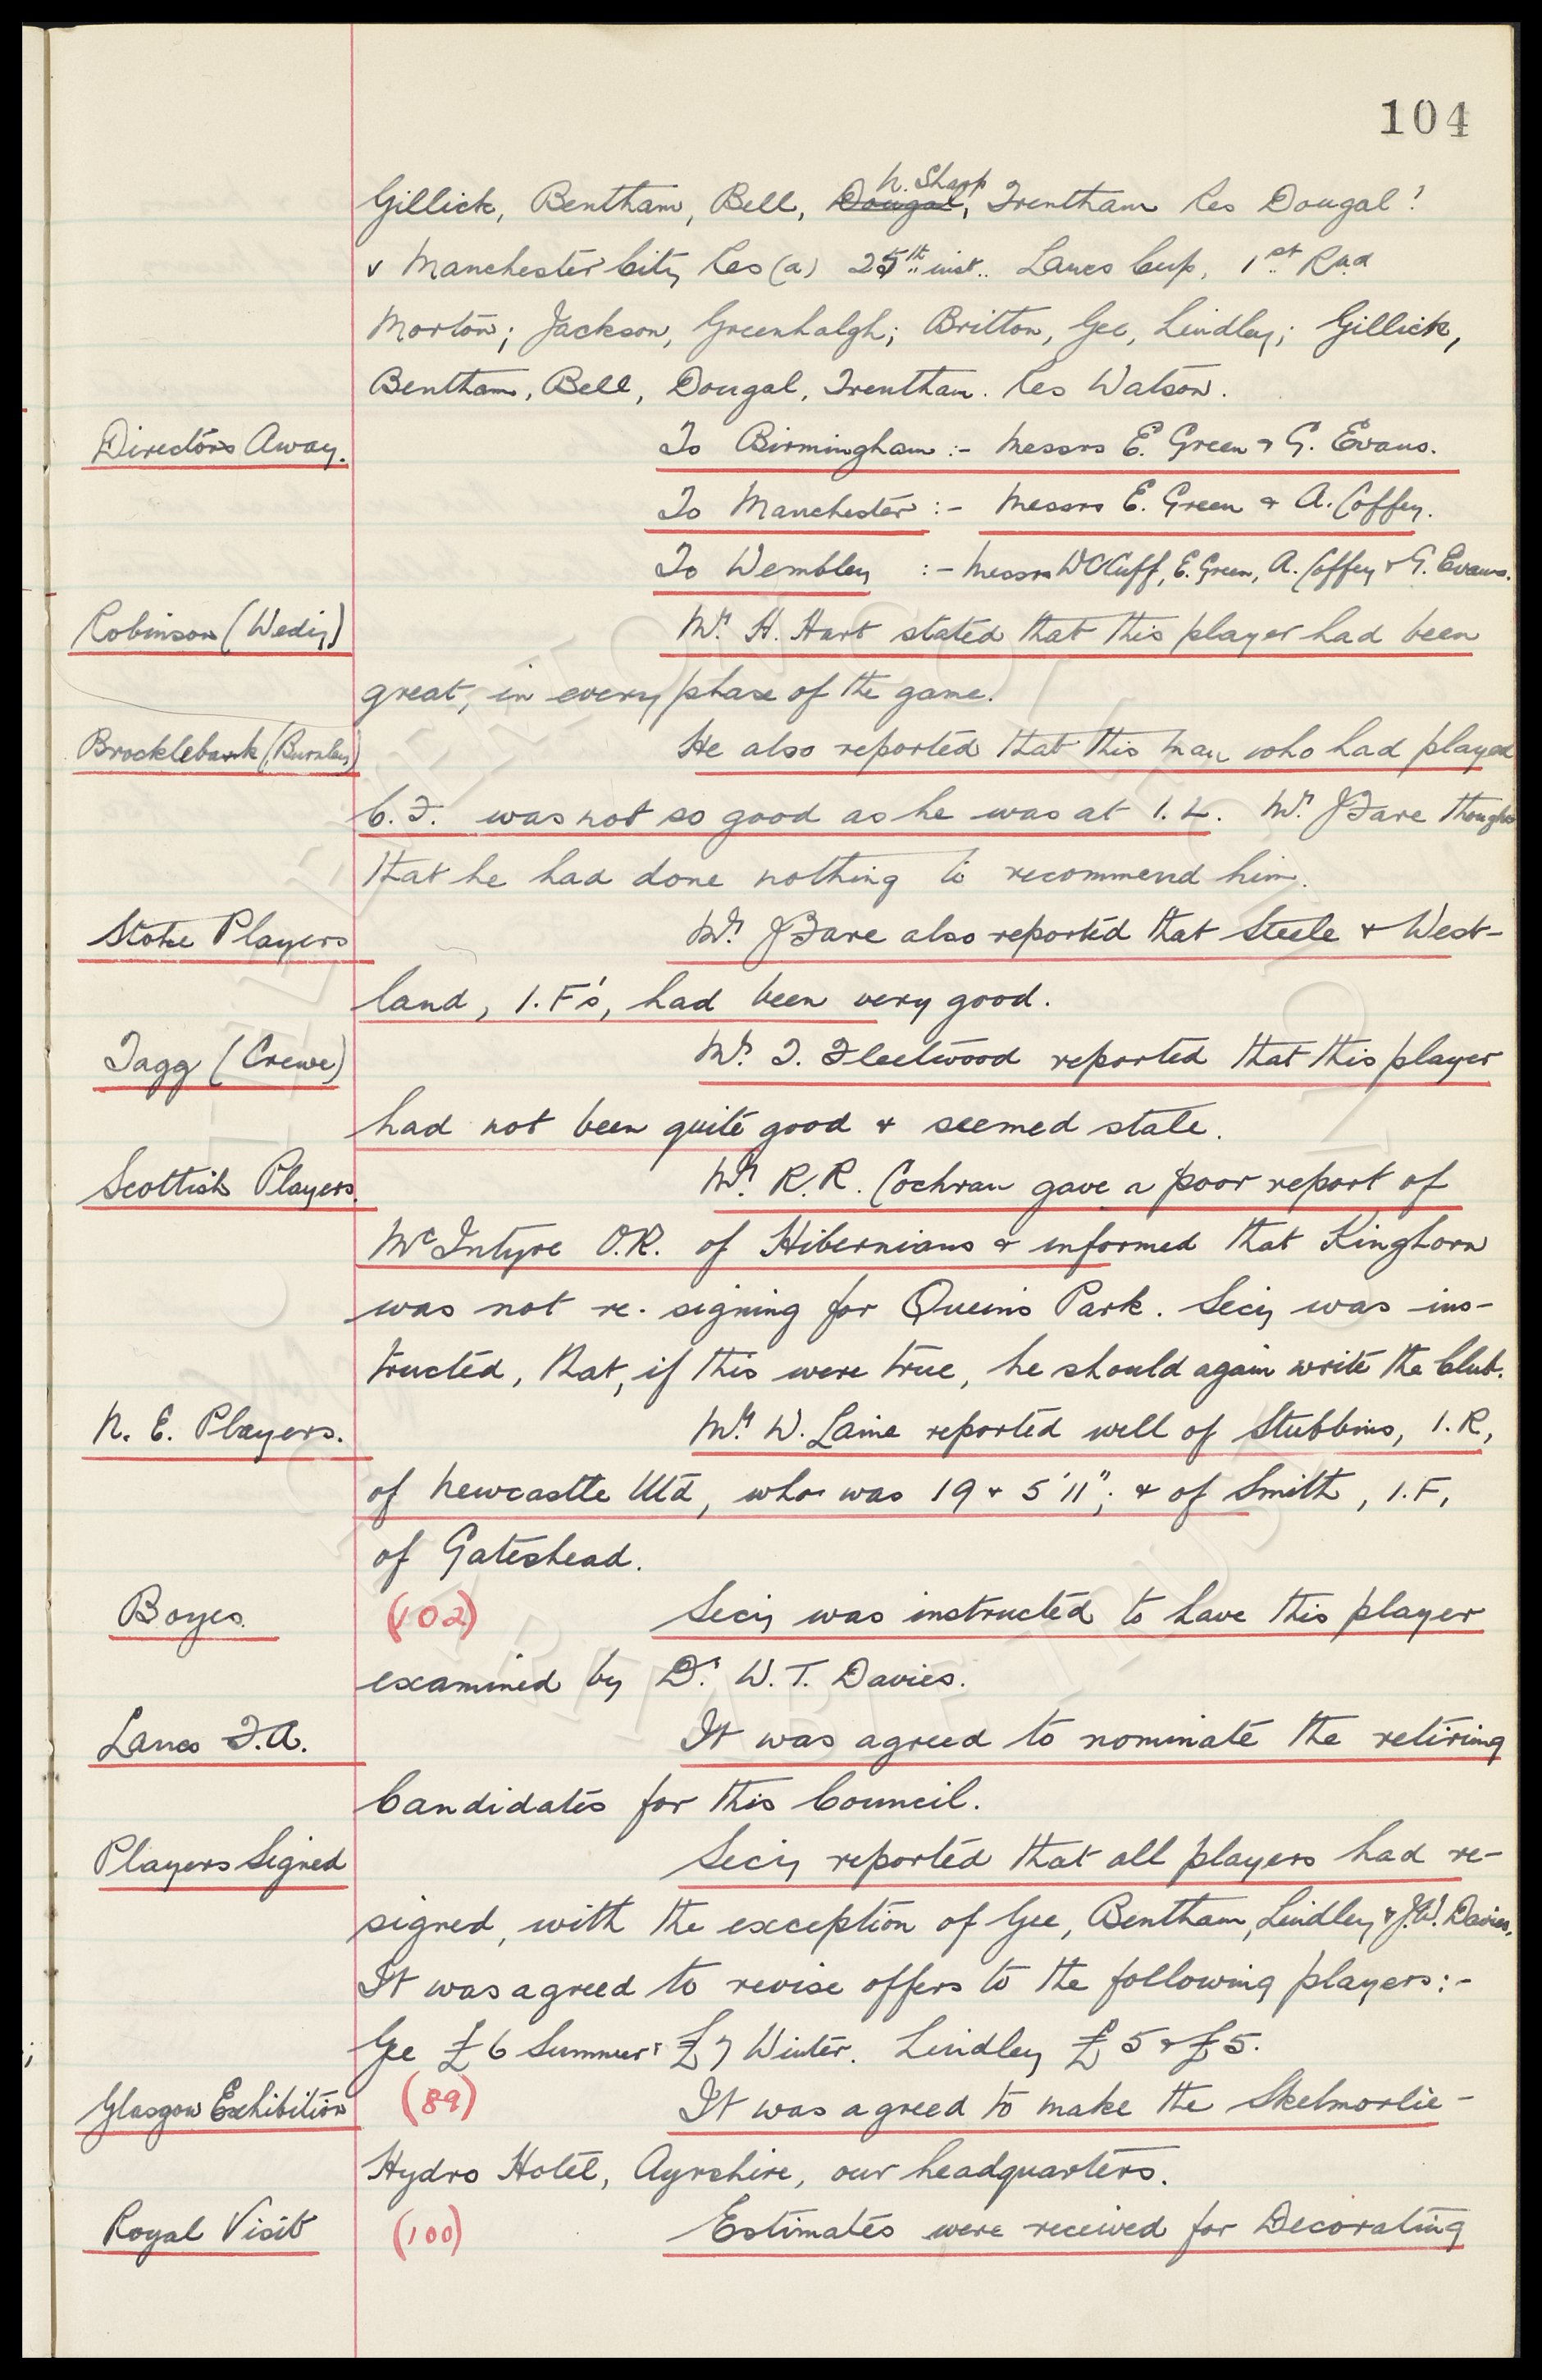 104
N. Sharp
Gillick, Bentham, Bell, Dougal, Trentham Res Dougal!
v Manchester City Res (a) 25th inst. Lancs Cup, 1st Rnd
Morton; Jackson, Greenhalgh; Britton, Gee, Lindley; Gillick,
Bentham, Bell, Dougal, Trentham. Res Watson.
Directors Away. To Birmingham :- Messrs E. Green & G. Evans.
To Manchester :- Messrs E. Green & A. Coffey.
To Wembley :- Messrs W C Cuff, E. Green, A. Coffey & G. Evans.
Robinson (Wedy) Mr. H. Hart stated that this player had been
great, in every phase of the game.
Brocklebank (Burnley) He also reported that this man who had played
C.F. was not so good as he was at I.L. Mr. J Fare thought
that he had done nothing to recommend him.
Stoke Players Mr. J Fare also reported that Steele & West-
land, I.F's, had been very good.
Tagg (Crewe) Mr. T. Fleetwood reported that this player
had not been quite good & seemed stale.
Scottish Players. Mr. R.R. Cochran gave a poor report of
McIntyre O.R. of Hibernians & informed that Kinghorn
was not re-signing for Queens Park. Secy was ins-
tructed, that, if this were true, he should again write the Club.
N. E. Players. Mr. W. Laine reported well of Stubbins, I.R,
of Newcastle Utd, who was 19 & 5'11"; & of Smith, I.F,
of Gateshead.
Boyes. (102) Secy was instructed to have this player
examined by Dr. W.T. Davies.
Lancs F.A. It was agreed to nominate the retiring
Candidates for this Council.
Players Signed Secy reported that all players had re-
signed, with the exception of Gee, Bentham, Lindley & J.W. Davies.
It was agreed to revise offers to the following players:-
Gee £6 Summer & £7 Winter. Lindley £5 & £5.
Glasgow Exhibition (89) It was agreed to make the Skelmorlie-
Hydro Hotel, Ayrshire, our headquarters.
Royal Visit (100) Estimates were received for Decorating